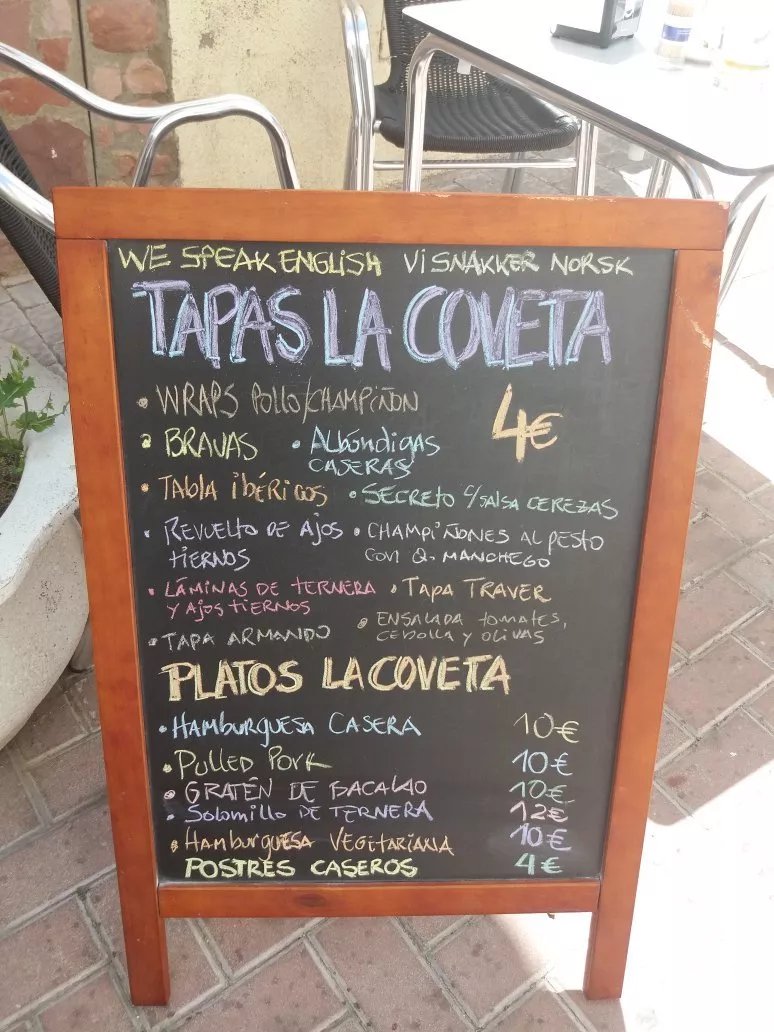 WE SPEAK ENGLISH VI SNAKKER NORSK
TAPAS LA COVETA
• WRAPS POLLO/CHAMPIÑON 4€
• BRAVAS • ALBÓNDIGAS
CASERAS
• TABLA IBÉRICOS • SECRETO C/SALSA CEREZAS
• REVUELTO DE AJOS • CHAMPIÑONES AL PESTO
TIERNOS CON Q. MANCHEGO
• LÁMINAS DE TERNERA • TAPA TRAVER
Y AJOS TIERNOS
• ENSALADA TOMATES,
• TAPA ARMANDO CEBOLLA Y OLIVAS
PLATOS LA COVETA
• HAMBURGUESA CASERA 10€
• PULLED PORK 10€
• GRATÉN DE BACALAO 10€
• SOLOMILLO DE TERNERA 12€
• HAMBURGUESA VEGETARIANA 10€
POSTRES CASEROS 4€